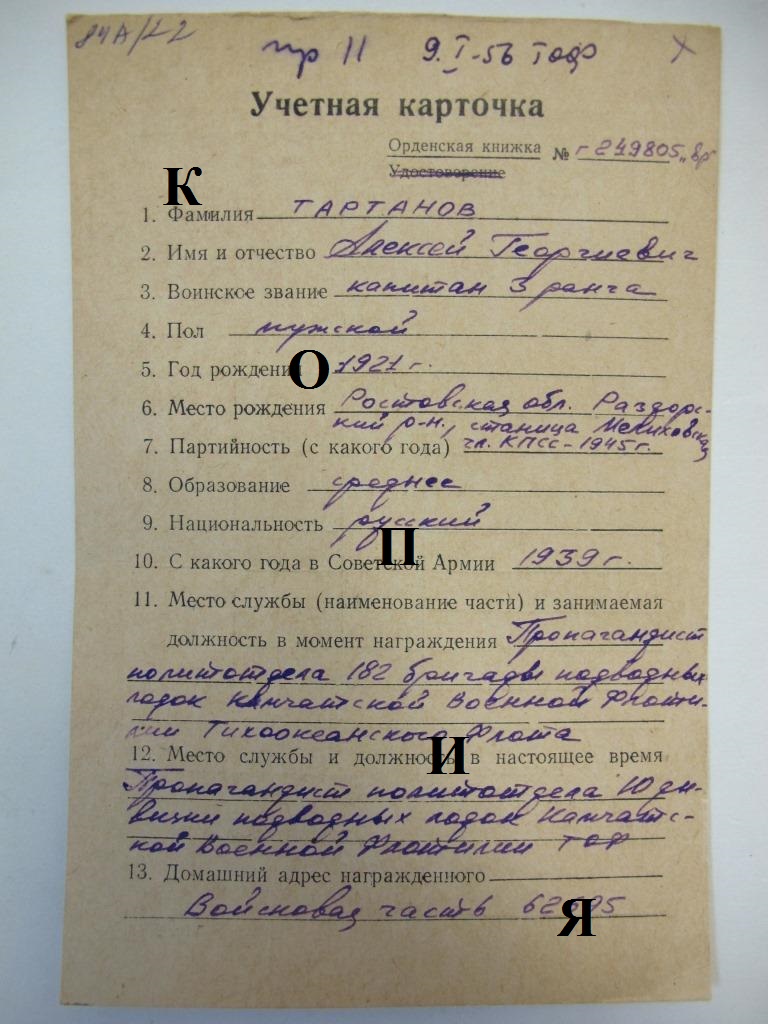 84А/22
пр 11 9.I-56 ТОФ
Учетная карточка
Орденская книжка № Г 249805
Удостоверение
К
1. Фамилия ТАРТАНОВ
2. Имя и отчество Алексей Георгиевич
3. Воинское звание капитан 3 ранга
4. Пол мужской
5. Год рождения 1921 г.
О
6. Место рождения Ростовская обл. Раздорс-
кий р-н., станица Мелиховская
7. Партийность (с какого года) чл. КПСС - 1945 г.
8. Образование среднее
9. Национальность русский
П
10. С какого года в Советской Армии 1939 г.
11. Место службы (наименование части) и занимаемая
должность в момент награждения Пропагандист
политотдела 182 бригады подводных
лодок Камчатской Военной Флоти-
лии Тихоокеанского Флота
И
12. Место службы и должность в настоящее время
Пропагандист политотдела 10 ди-
визии подводных лодок Камчатс-
кой Военной Флотилии ТОФ
13. Домашний адрес награжденного
Войсковая часть
Я